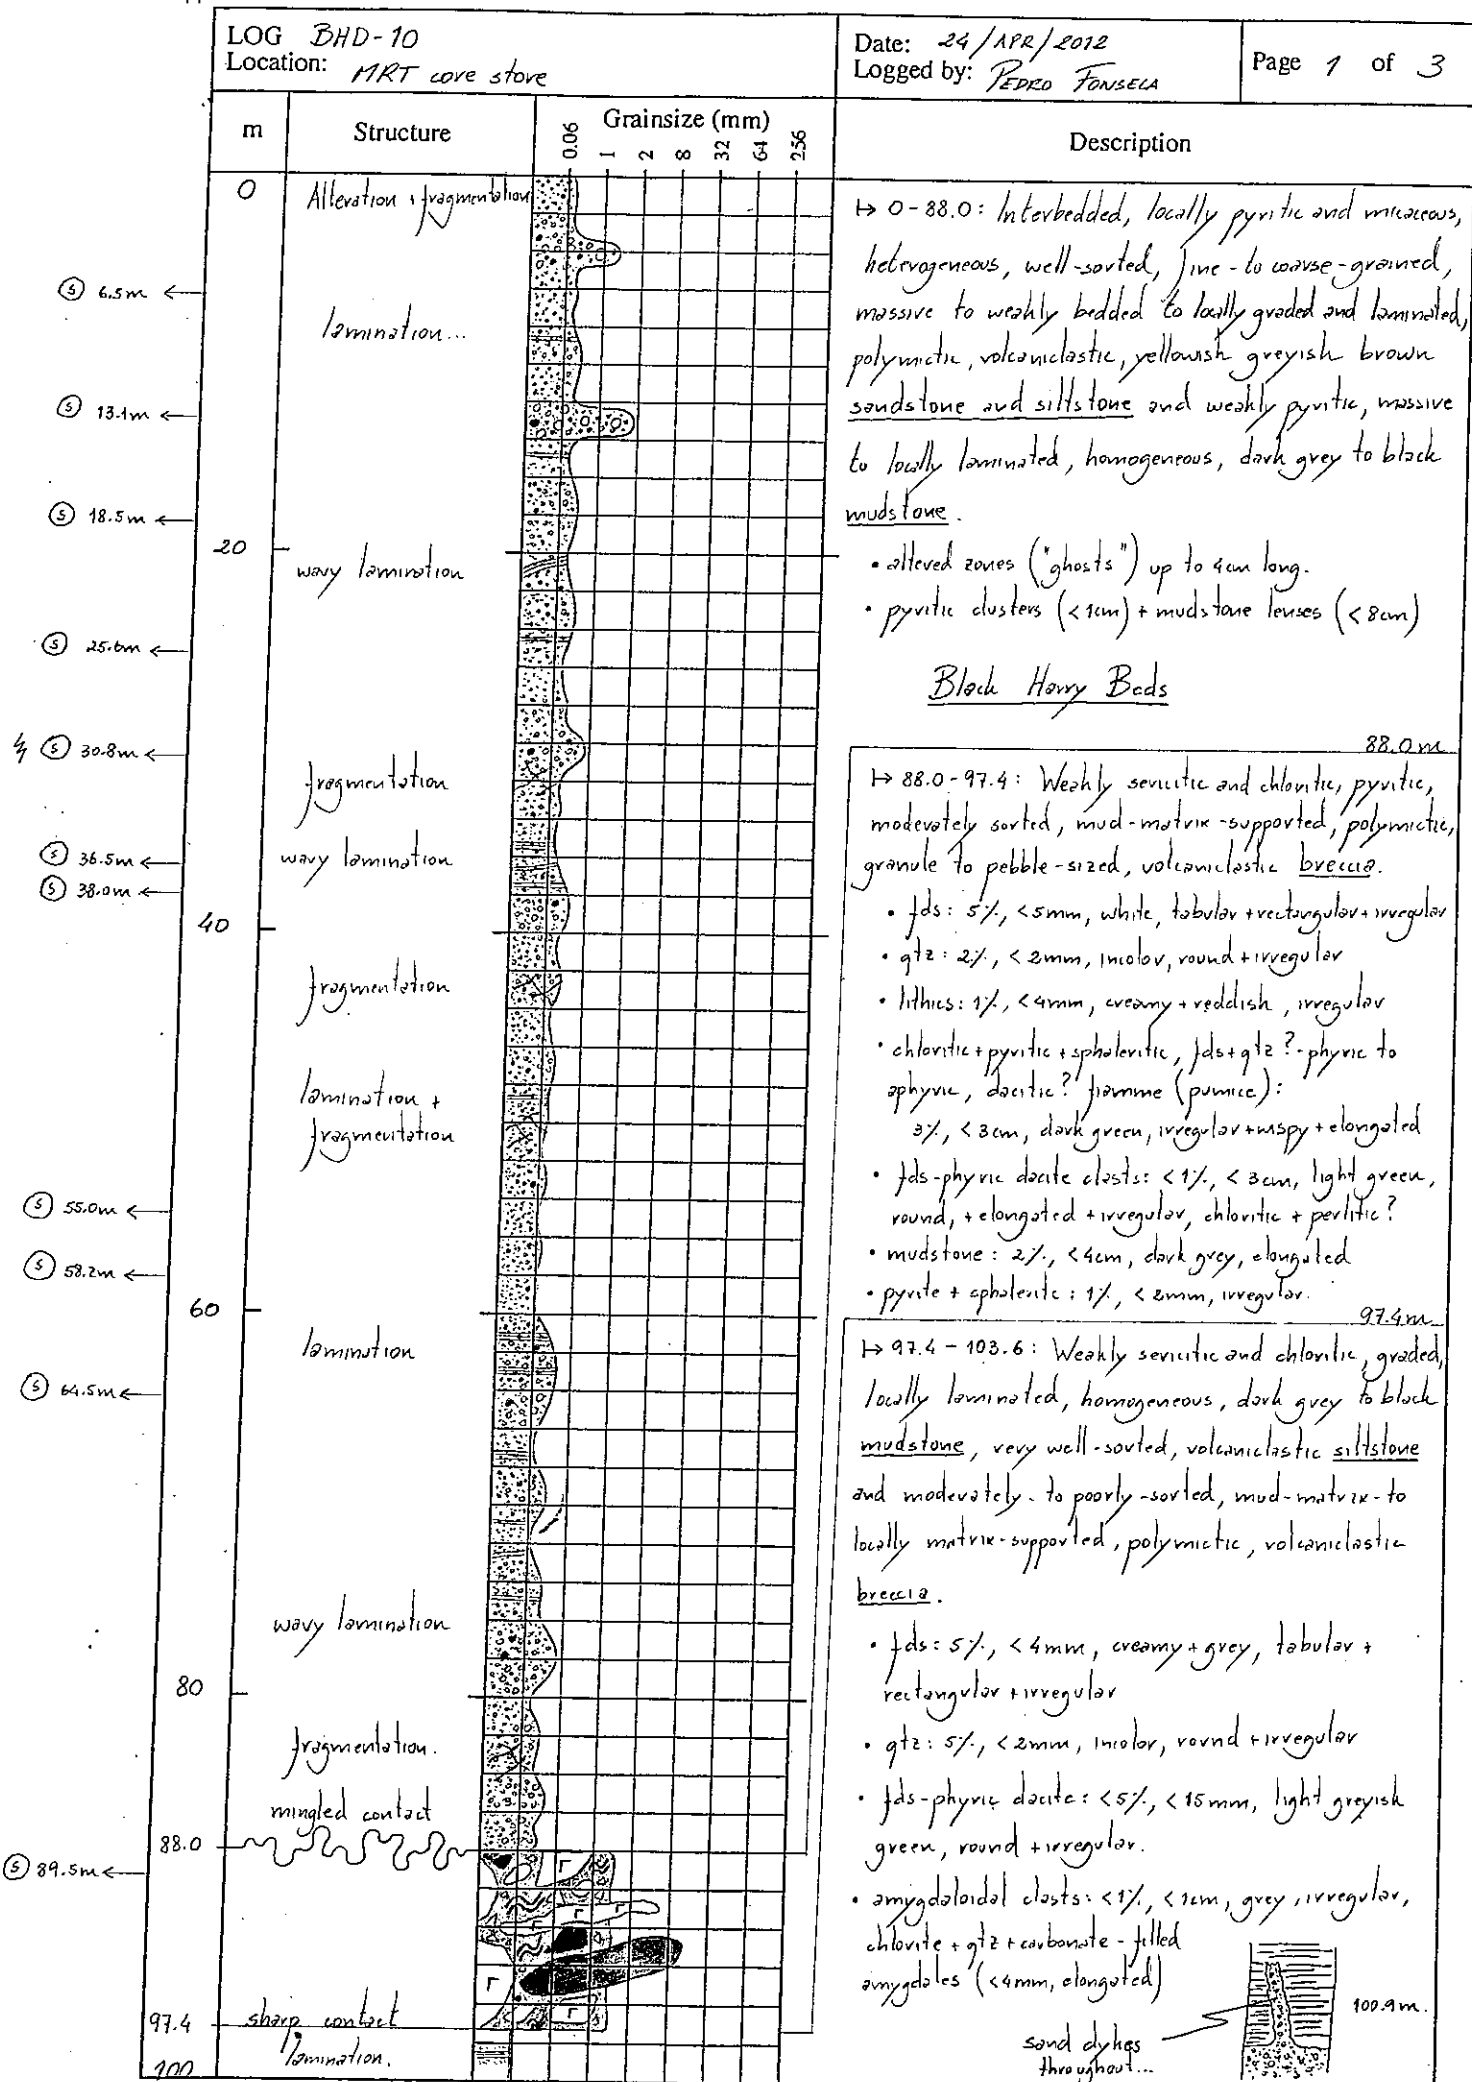 LOG BHD-10
Location: MRT core store
Date: 24/APR/2012
Logged by: PEDRO FONSECA
Page 1 of 3
m
Structure
Grainsize (mm)
0.06 1 2 8 32 64 256
Description
0
Alteration + fragmentation
Ⓢ 6.5m ←
lamination...
Ⓢ 13.1m ←
Ⓢ 18.5m ←
20
wavy lamination
Ⓢ 25.6m ←
Ⓢ 30.8m ←
fragmentation
Ⓢ 36.5m ←
wavy lamination
Ⓢ 38.0m ←
40
fragmentation
lamination +
fragmentation
Ⓢ 55.0m ←
Ⓢ 58.2m ←
60
lamination
Ⓢ 64.5m ←
wavy lamination
80
fragmentation.
mingled contact
88.0
Ⓢ 89.5m ←
97.4
sharp contact
lamination.
100
↦ 0-88.0: Interbedded, locally pyritic and micaceous,
heterogeneous, well-sorted, fine-to coarse-grained,
massive to weakly bedded to locally graded and laminated,
polymictic, volcaniclastic, yellowish greyish brown
sandstone and siltstone and weakly pyritic, massive
to locally laminated, homogeneous, dark grey to black
mudstone.
• altered zones ("ghosts") up to 4cm long.
• pyritic clusters (<1cm) + mudstone lenses (<8cm)
Black Harry Beds
88.0m
↦ 88.0-97.4: Weakly sericitic and chloritic, pyritic,
moderately sorted, mud-matrix-supported, polymictic,
granule to pebble-sized, volcaniclastic breccia.
• fds: 5%, <5mm, white, tabular+rectangular+irregular
• qtz: 2%, <2mm, incolor, round+irregular
• lithics: 1%, <4mm, creamy+reddish, irregular
• chloritic+pyritic+sphaleritic, fds+qtz?-phyric to
aphyric, dacitic? fiamme (pumice):
3%, <3cm, dark green, irregular+wispy+elongated
• fds-phyric dacite clasts: <1%, <3cm, light green,
round, +elongated+irregular, chloritic + perlitic?
• mudstone: 2%, <4cm, dark grey, elongated
• pyrite + sphalerite: 1%, <2mm, irregular.
97.4m
↦ 97.4-103.6: Weakly sericitic and chloritic, graded,
locally laminated, homogeneous, dark grey to black
mudstone, very well-sorted, volcaniclastic siltstone
and moderately-to poorly-sorted, mud-matrix-to
locally matrix-supported, polymictic, volcaniclastic
breccia.
• fds: 5%, <4mm, creamy+grey, tabular+
rectangular+irregular
• qtz: 5%, <2mm, incolor, round+irregular
• fds-phyric dacite: <5%, <15mm, light greyish
green, round+irregular.
• amygdaloidal clasts: <1%, <1cm, grey, irregular,
chlorite+qtz+carbonate-filled
amygdales (<4mm, elongated)
100.9m.
sand dykes
throughout...